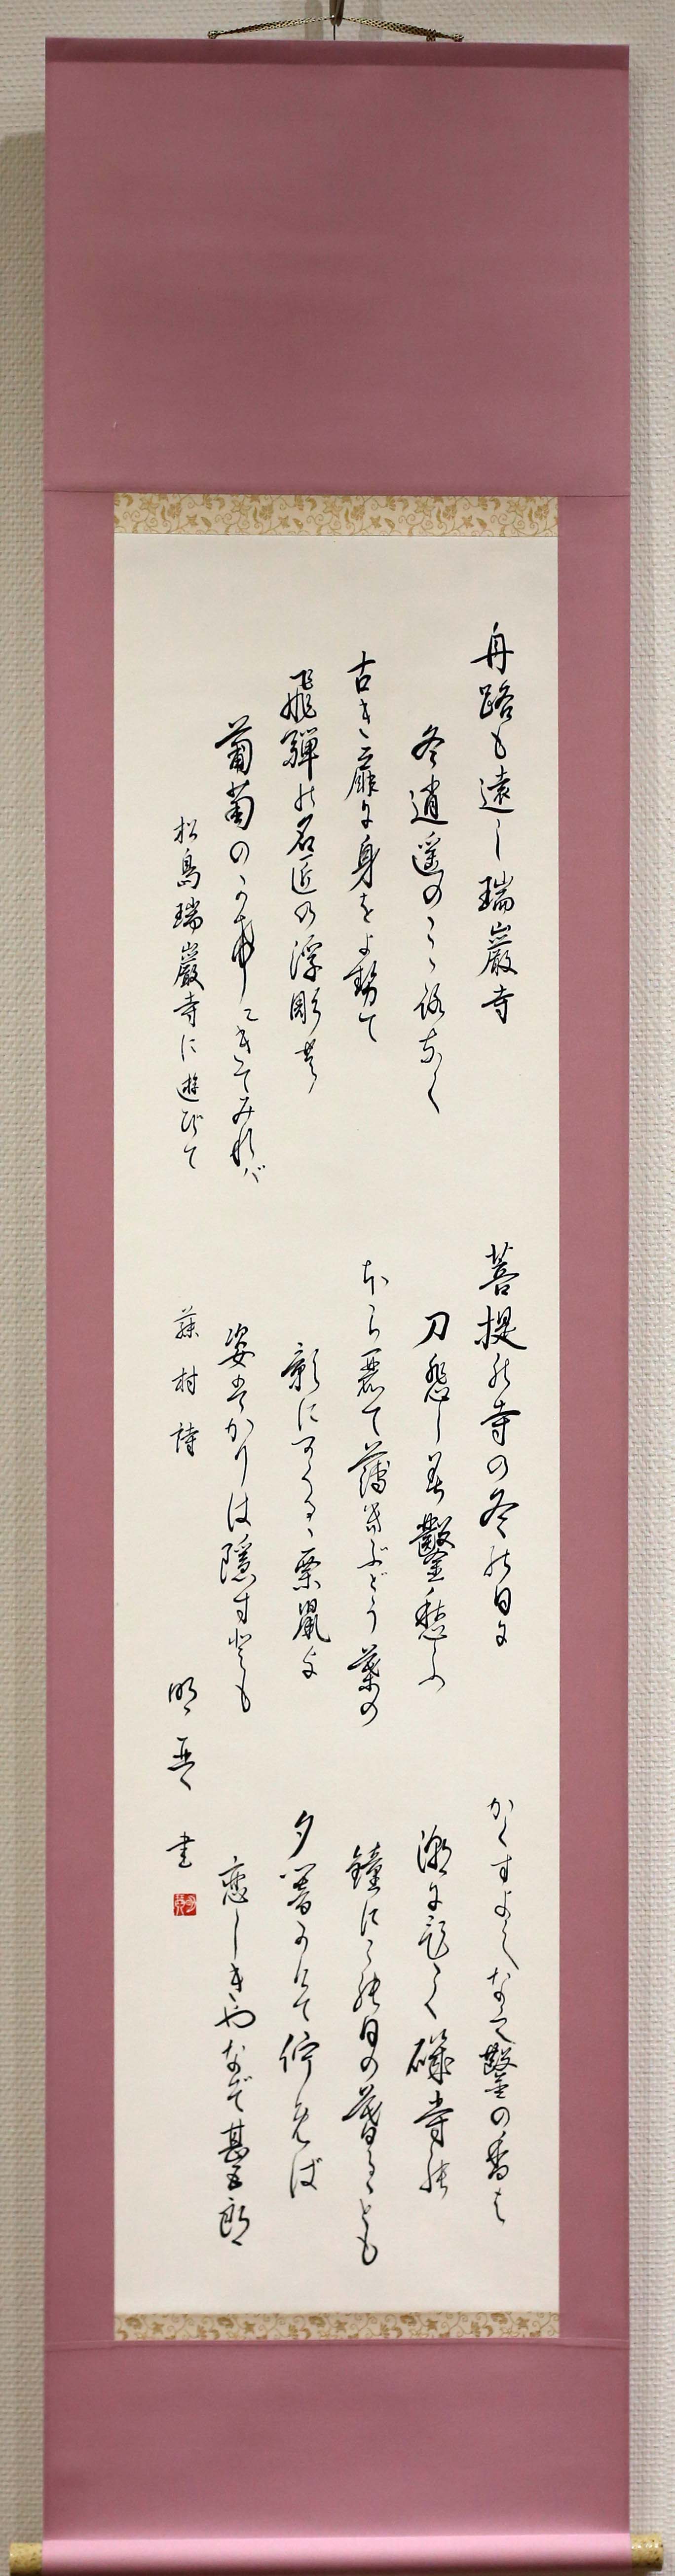 舟路も遠し瑞巌寺
冬逍遥のこゝろなく
古き扉に身をよせて
飛騨の名匠の浮彫の
葡萄のかげにきてみれバ
菩提の寺の冬の日に
刀悲しみ鑿愁ふ
ほられて薄きぶどう葉の
影にかくるゝ栗鼠よ
姿ばかりは隠すとも
かくすよしなし鑿の香は
潮にひゞく磯寺の
鐘にこの日の暮るゝとも
夕闇かけて佇めば
恋しきやなぞ甚五郎
松島瑞巌寺に遊びて
藤村詩
書